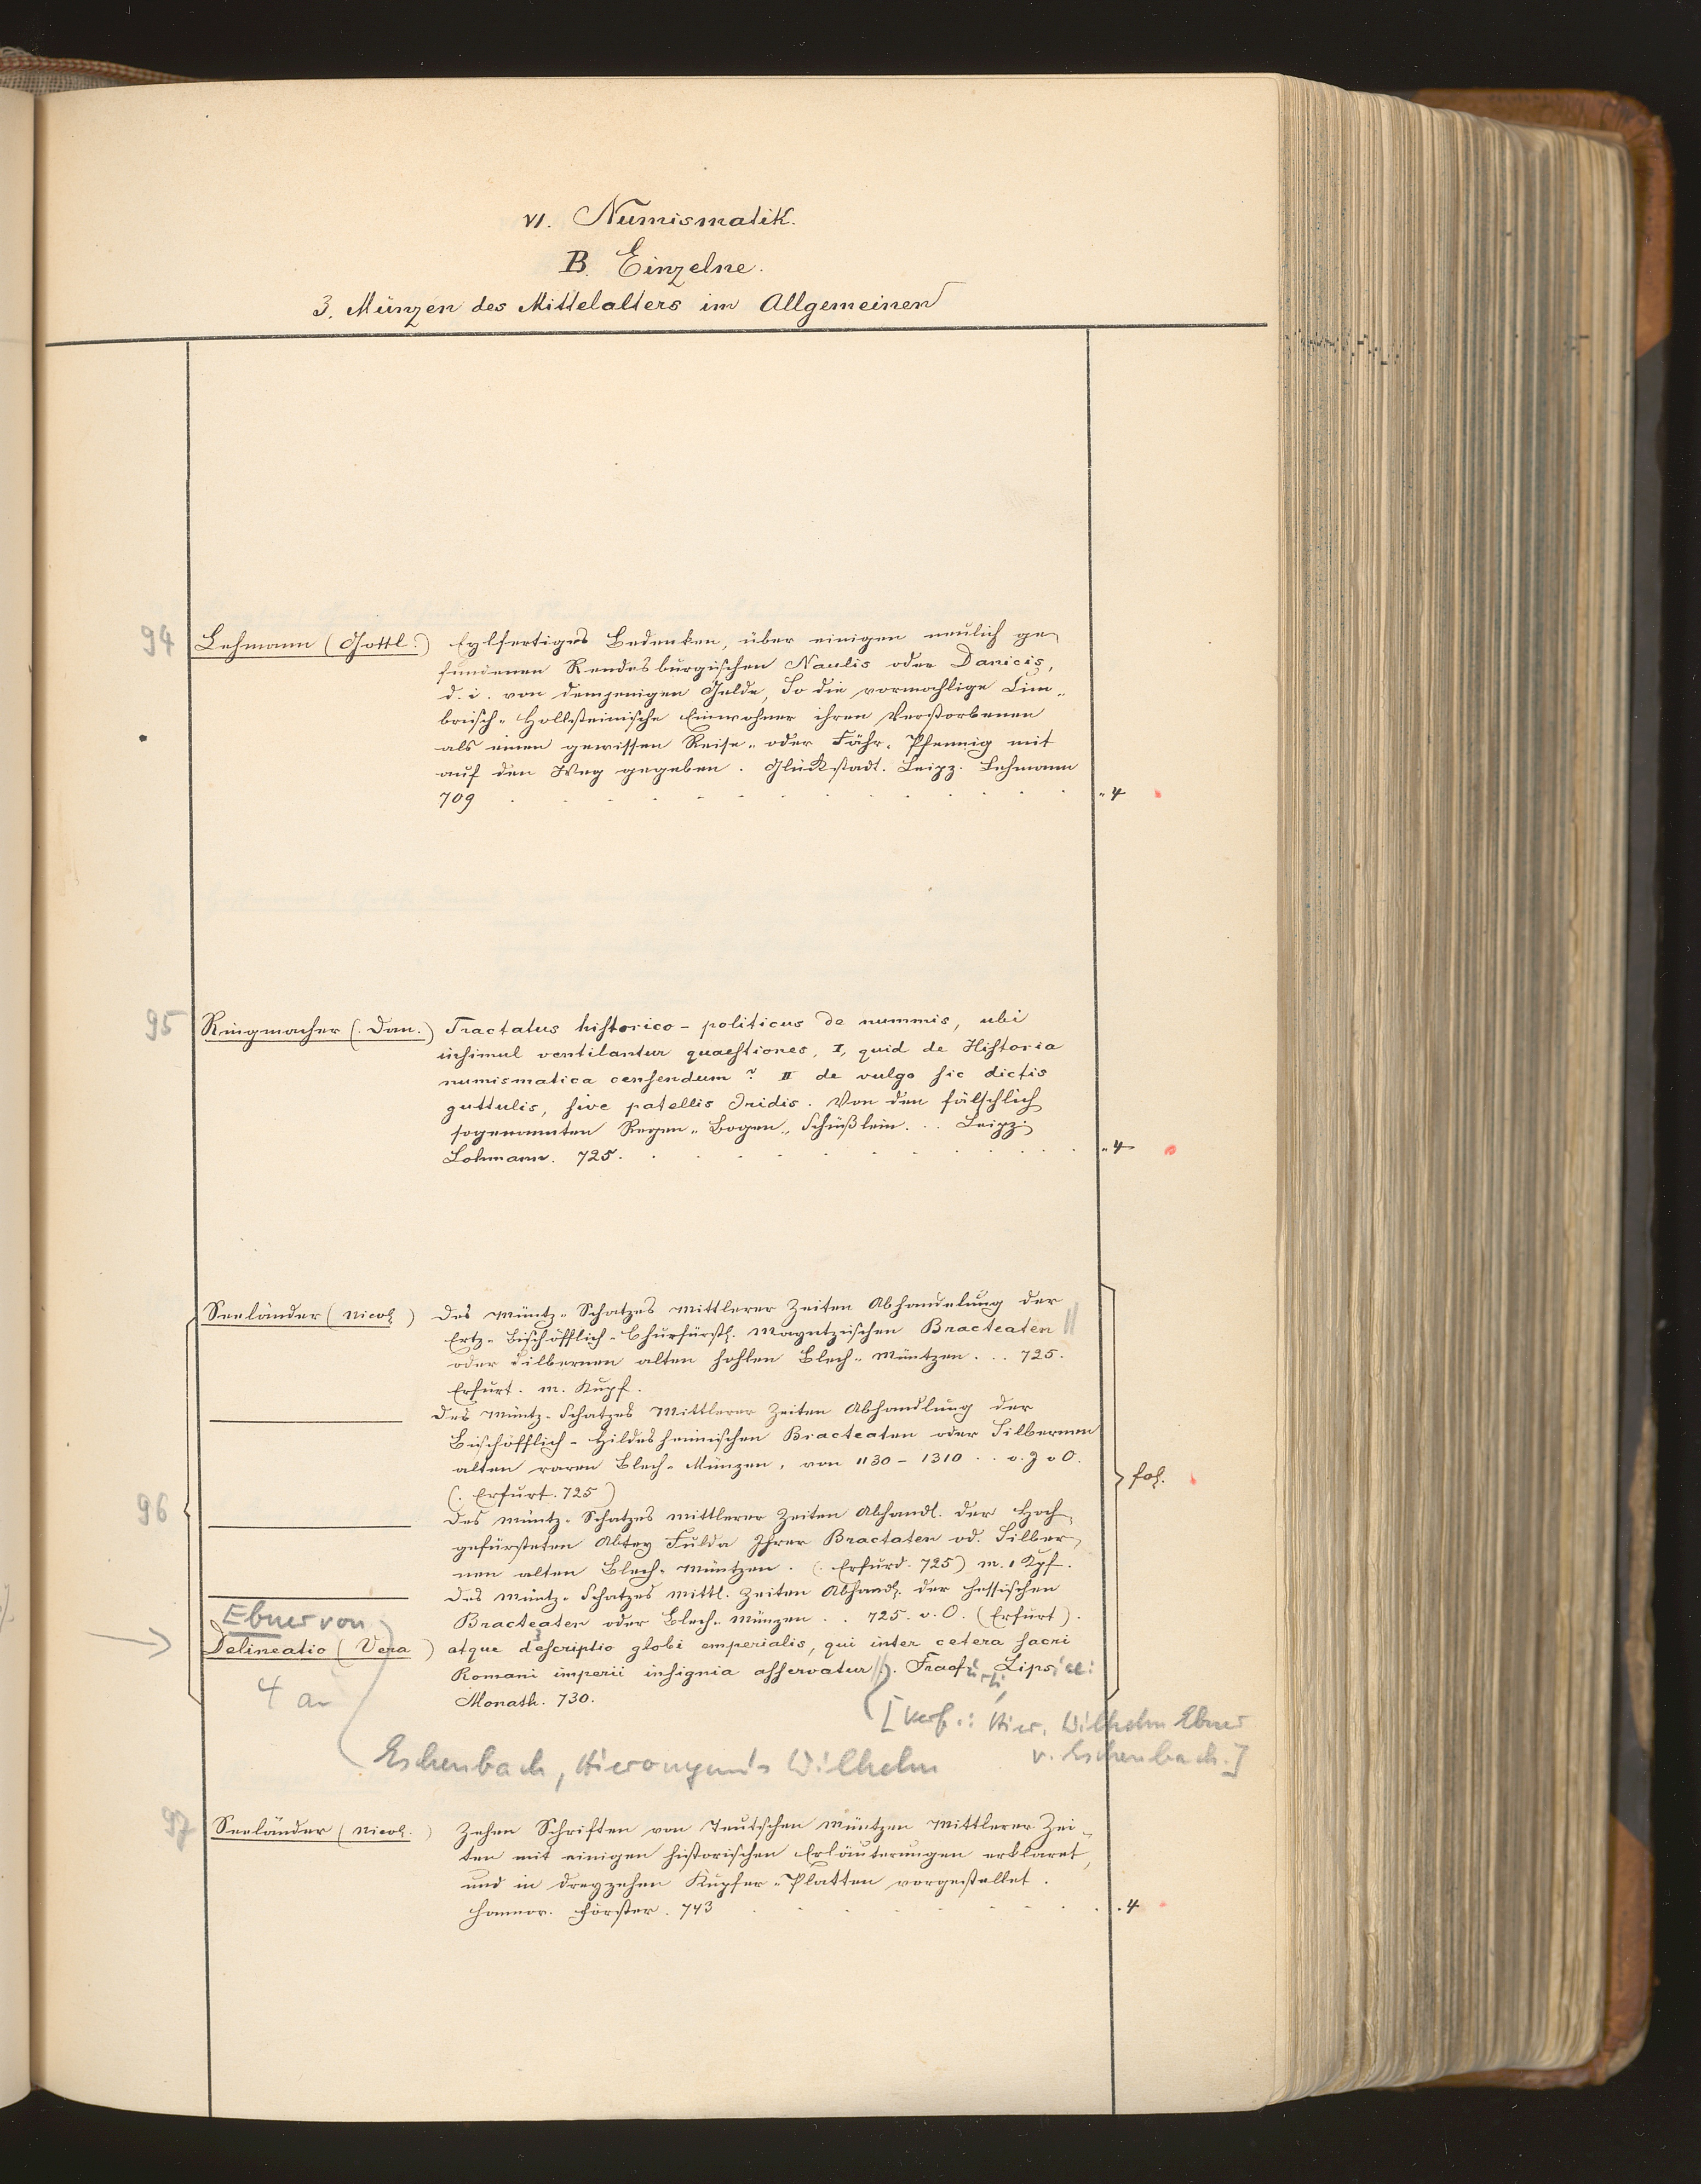 VI. Numismatik.
B. Einzelne.
3. Münzen des Mittelalters im Allgemeinen
94 Lehmann (Gottl.) Eylfertiges Bedenken, über einigen neulich ge-
fundenen Rendesburgischen Naulis oder Danicis,
d. i. von demjenigen Gelde, So die vormahlige Cim-
brisch-Hollsteinische Einwohner ihren Verstorbenen
als einen gewissen Reise- oder Fähr-Pfennig mit
auf den Weg gegeben. Glückstadt. Leipz. Lehmann
709 . . . . . . . . . . . . . „ 4
95 Ringmacher (Dan.) Tractatus historico-politicus de nummis, ubi
insimul ventilantur quaestiones, I, quid de Historia
numismatica censendum? II de vulgo sic dictis
guttulis, sive patellis Iridis. Von den fälschlich
sogenannten Regen-Bogen-Schüßlein. .. Leipz.
Lohmann. 725. . . . . . . . . . . „ 4
Seeländer (Nicol.) Des Müntz-Schatzes Mittlerer Zeiten Abhandelung der
Ertz-Bischöfflich-Churfürstl. Mayntzischen Bracteaten ||
oder Silbernen alten hohlen Blech-Müntzen. .. 725.
Erfurt. m. Kupf.
——— Des Müntz-Schatzes Mittlerer Zeiten Abhandlung der
Bischöfflich-Hildesheimischen Bracteaten oder Silbernen
alten raren Blech-Münzen, von 1130-1310 .. v. J v O.
(Erfurt. 725) fol.
96 ——— Des Müntz-Schatzes mittlerer Zeiten Abhandl. der Hoch-
gefürsteten Abtey Fulda Ihrer Bractaten od. Silber-
nen alten Blech-Müntzen. (Erfurd. 725) m. 1 Kpf.
——— Des Müntz-Schatzes mittl. Zeiten Abhandl. der Hessischen
Bracteaten oder Blech-Münzen .. 725. v. O. (Erfurt).
Ebner von
Delineatio (Vera) atque descriptio globi imperialis, qui inter cetera sacri
Romani imperii insignia asservatur ||. Fracfurti, Lipsiae:
4 an Monath. 730.
[Verf.: Hier. Wilhelm Ebner
v. Eschenbach.]
Eschenbach, Hieronymus Wilhelm
97 Seeländer (Nicol.) Zehen Schriften von Teutschen Müntzen Mittlerer Zei-
ten mit einigen historischen Erläuterungen erklaret,
und in dreyzehen Kupfer-Platten vorgestellet.
Hannov. Förster. 743 . . . . . . . . 4